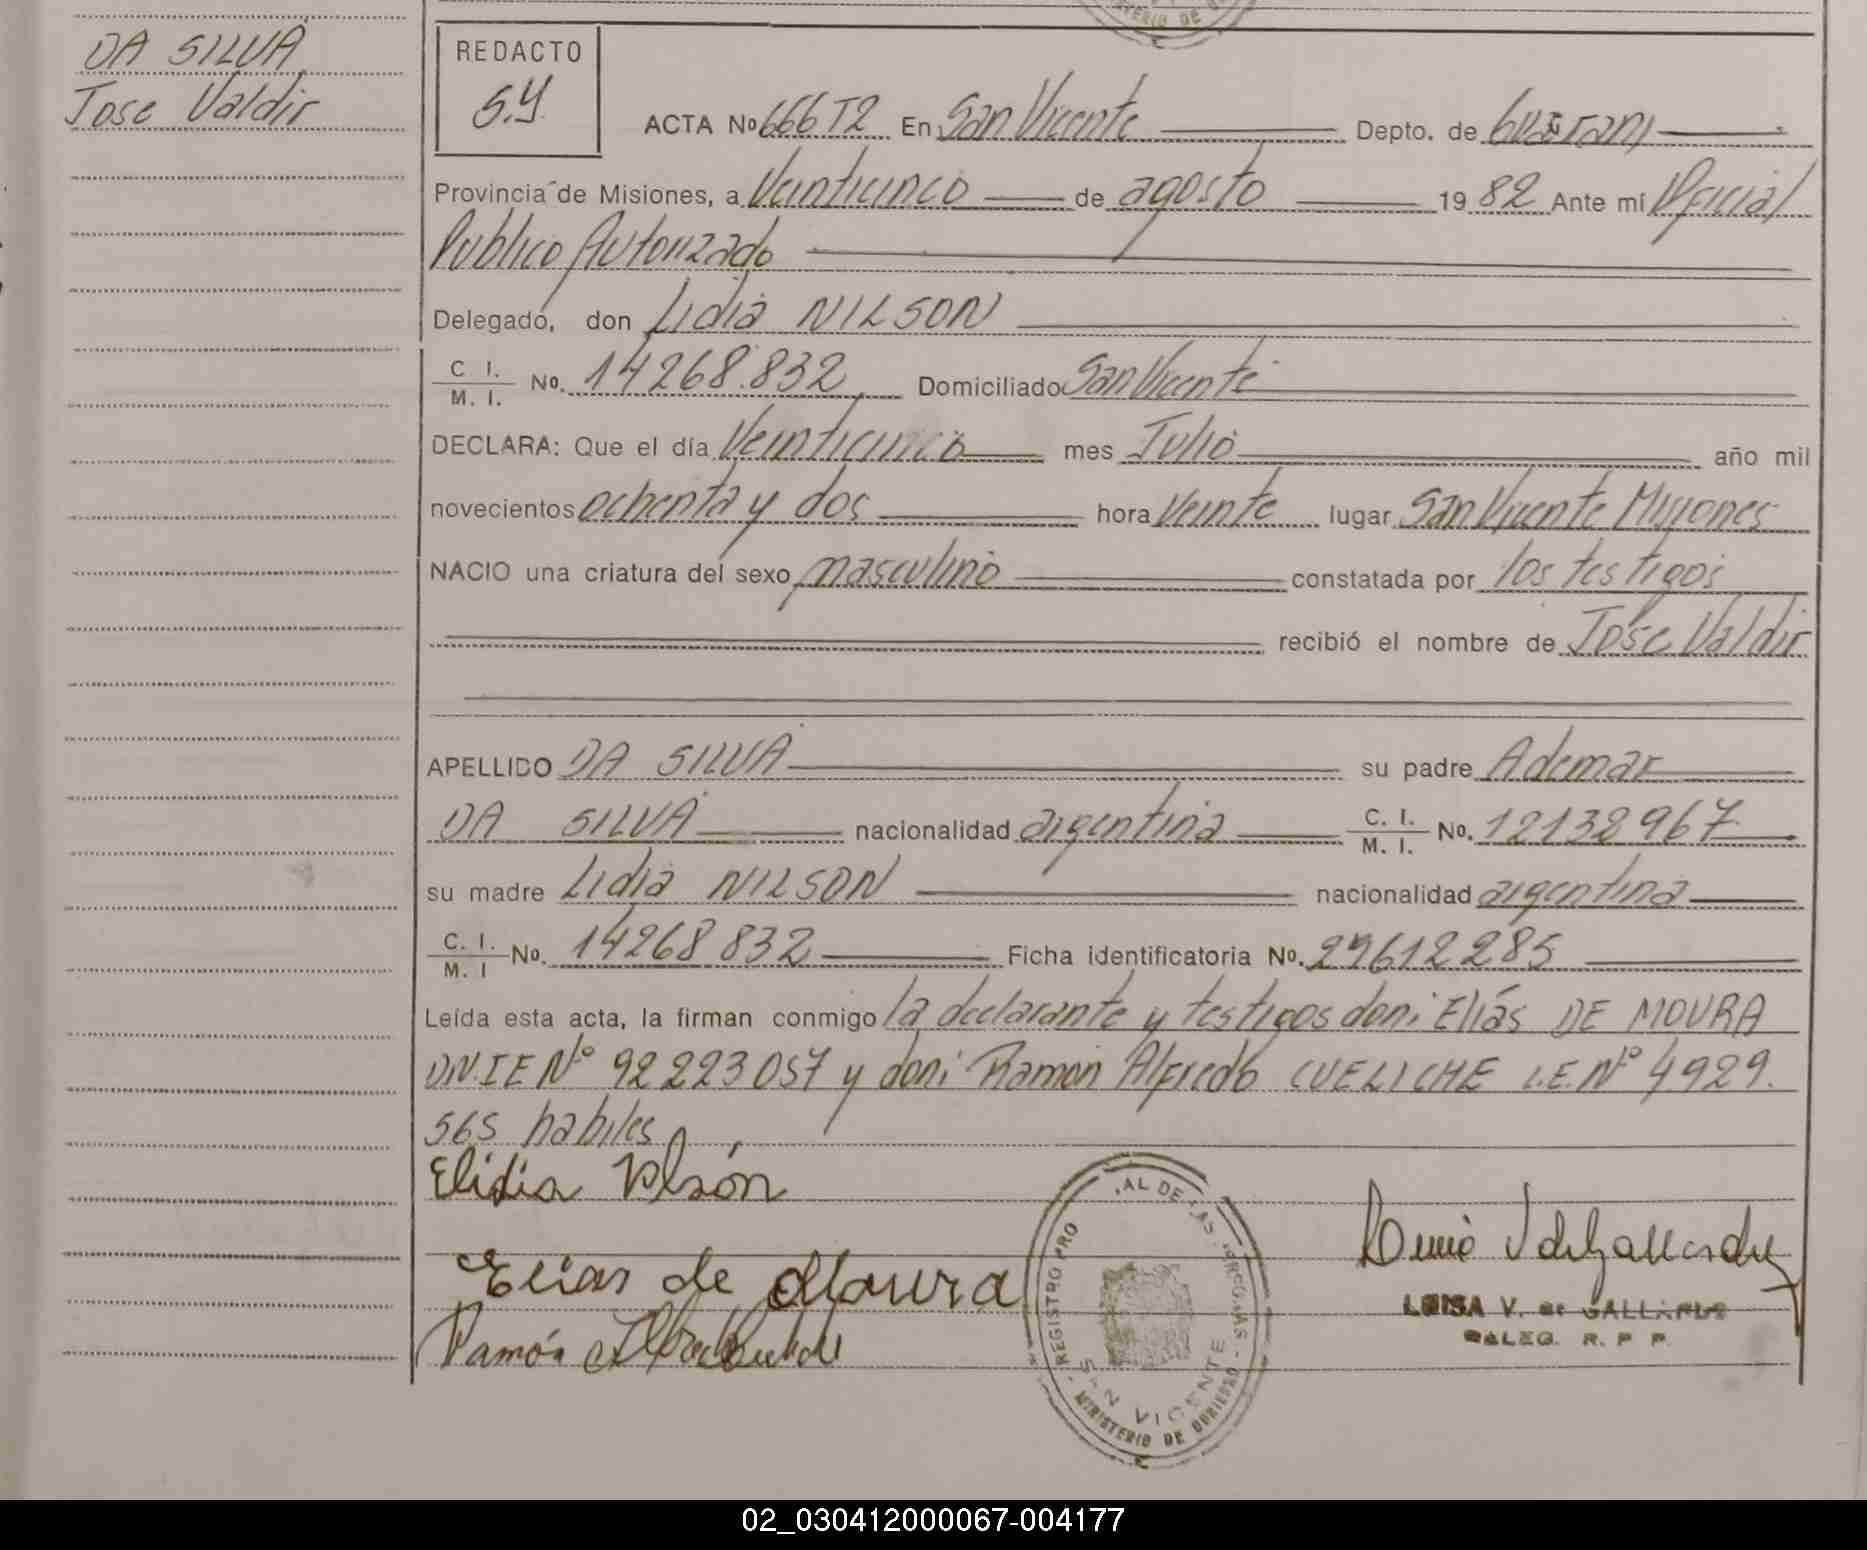 DA SILVA
Jose Valdir
REDACTO
S.Y.
ACTA No 666 T2 En San Vicente Depto. de Guarani
Provincia de Misiones, a Veinticinco de agosto 1982 Ante mí Oficial
Publico Autorizado
Delegado, don Lidia NILSON
C. I. / M. I. No. 14268.832 Domiciliado San Vicente
DECLARA: Que el día Veinticinco mes Julio año mil
novecientos ochenta y dos hora Veinte lugar San Vicente Misiones
NACIO una criatura del sexo masculino constatada por los testigos
recibió el nombre de Jose Valdir
APELLIDO DA SILVA su padre Ademar
DA SILVA nacionalidad argentina C. I. / M. I. No. 12138967
su madre Lidia NILSON nacionalidad argentina
C. I. / M. I No. 14268832 Ficha identificatoria No. 29612285
Leída esta acta, la firman conmigo la declarante y testigos don: Elías DE MOURA
DNIE Nº 92223057 y don: Ramón Alfredo CUELICHE L.E. Nº 4929.
565 habiles
Elidia Nlsón
Elias de Moura
Ramón
REGISTRO PRO AL DE LAS PERSONAS
SAN VICENTE
MINISTERIO DE GOBIERNO
LUISA V. de GALLARDO
DELEG. R. P. P.
MINISTERIO DE
02_030412000067-004177